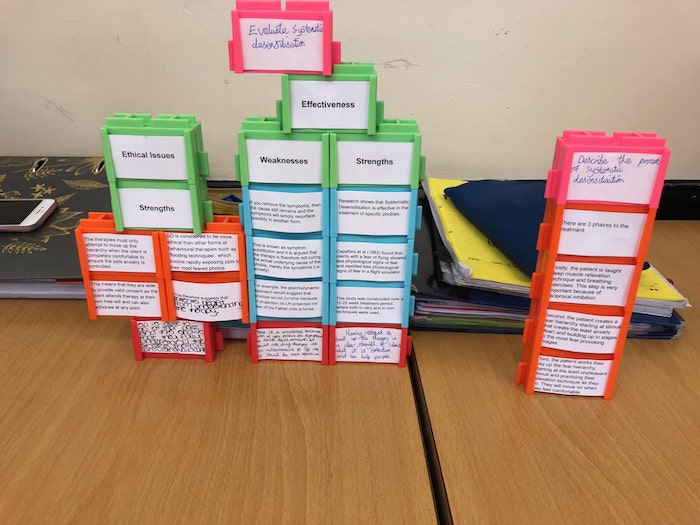 Evaluate systematic
desensitisation
Effectiveness
Ethical Issues
Strengths
The therapies must only
attempt to move up the
hierarchy when the client is
completely comfortable to
ensure the ppts anxiety is
controlled.
This means that they are able
to provide valid consent as the
client attends therapy at their
own free will and can also
withdraw at any point.
SD is considered to be more
ethical than other forms of
behavioural therapies such as
flooding techniques', which
involve rapidly exposing ppts to
their most feared phobia.
therefore suggests that
Weaknesses
If you remove the symptoms, then
the cause still remains and the
symptoms will simply resurface,
possibly in another form.
This is known as symptom
substitution and it is argued that
the therapy is therefore not curing
the actual underlying cause of the
phobia, merely the symptoms (i.e.
anxiety).
For example, the psychodynamic
approach would suggest that
phobias would develop because
of projection as LH projected his
fear of his Father onto a horse
Strengths
Research shows that Systematic
Desensitisation is effective in the
treatment of specific phobias.
Capafons et al (1983) found that
clients with a fear of flying showed
less physiological signs of fear
and reported less physiological
signs of fear in a flight simulator
This study was constructed over a
12-25 week treatment period,
where both in vitro and in vivo
techniques were used.
Describe the process
of systematic
desensitisation
There are 3 phases to the
treatment.
Firstly, the patient is taught
deep muscle relaxation
technique and breathing
exercises. This step is very
important because of
reciprocal inhibition.
Second, the patient creates a
fear hierarchy starting at stimuli
that create the least anxiety
and building up in stages
the most fear provoking
Third, the patient works their
way up the fear hierarchy,
starting at the least unpleasant
stimuli and practising their
relaxation technique as they
go. They will move on when
they feel comfortable.